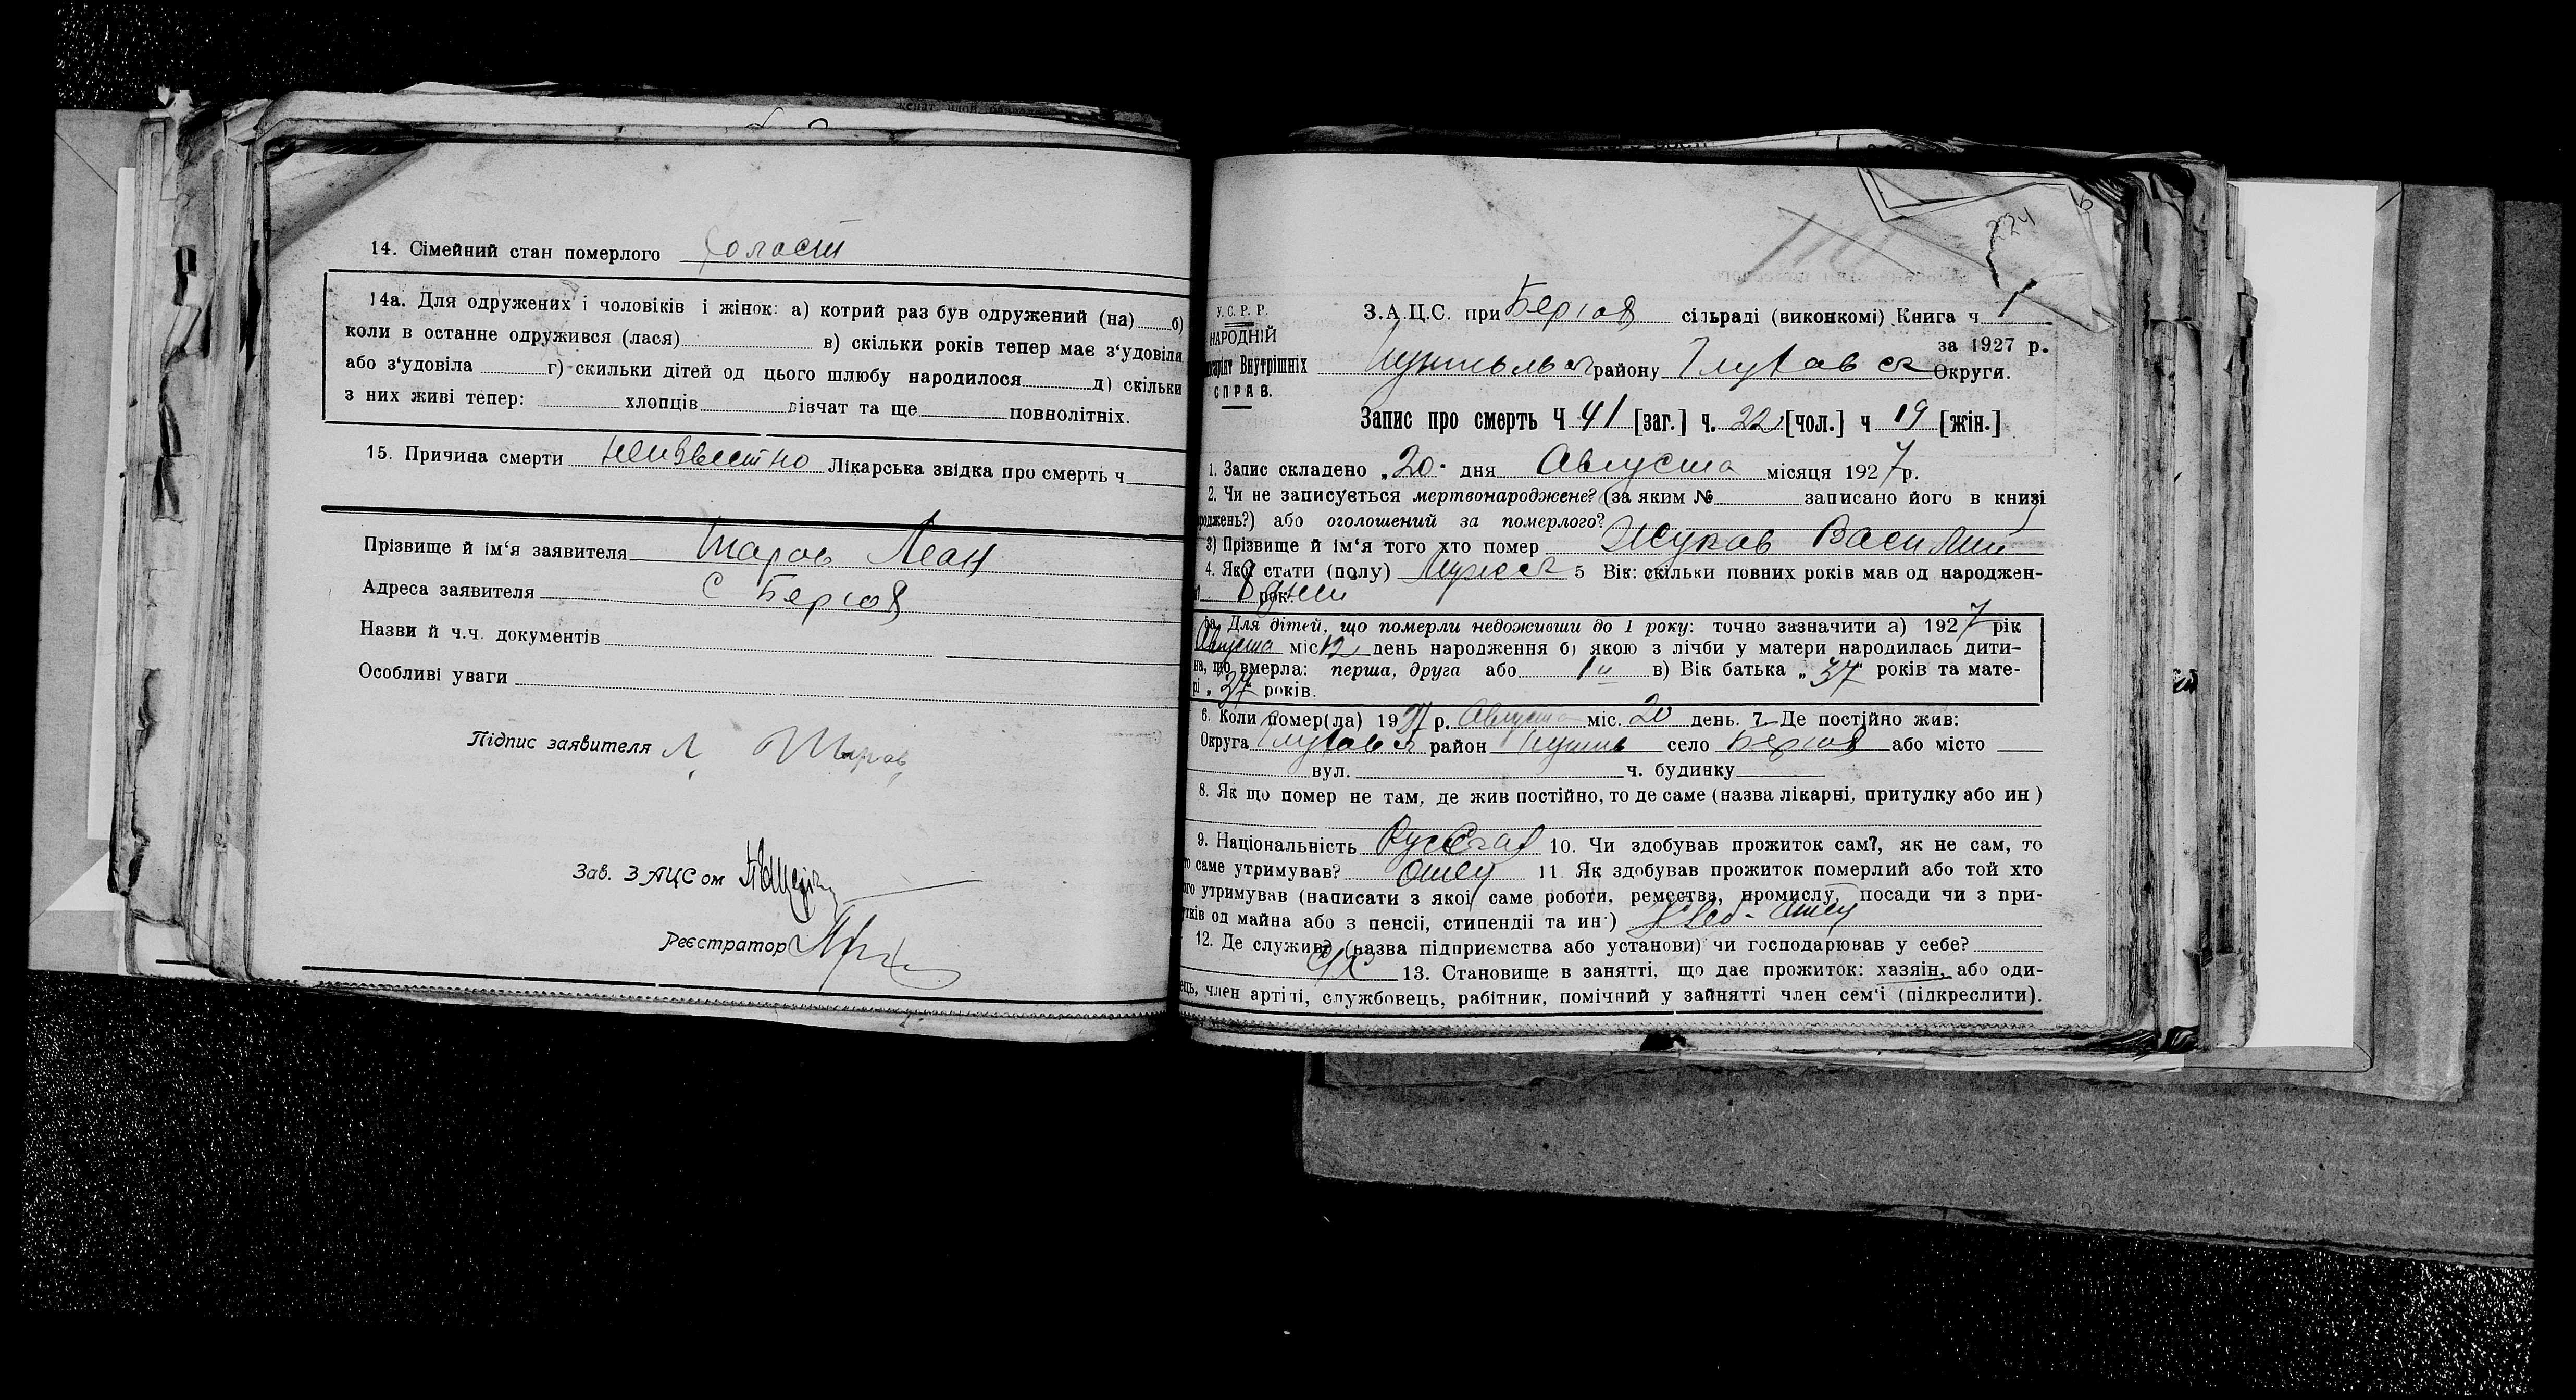 14. Сімейний стан померлого холост
14а. Для одружених і чоловіків і жінок: а) котрий раз був одружений (на) б)
коли в останне одружився (лася) в) скільки років тепер має з‘удовіли
або з‘удовіла г) скильки дітей од цього шлюбу народилося д) скільки
з них живі тепер: хлопців дівчат та ще повнолітніх.
15. Причина смерти неизвестно Лікарська звідка про смерть ч
Прізвище й ім‘я заявителя Шаров Леон
Адреса заявителя С Берюх
Назви й ч.ч. документів
Особливі уваги
Підпис заявителя Л Шаров
Зав. ЗАЦСом
Реєстратор
224
У.С.Р.Р.
НАРОДНІЙ
Внутрішніх
СПРАВ.
З.А.Ц.С. при Берюх сільраді (виконкомі) Книга ч 1
за 1927 р.
району Глухавск Округи.
Запис про смерть Ч 41 [заг.] ч. 22 [чол.] ч 19 [жін.]
1. Запис складено „20" дня Августа місяця 1927 р.
2. Чи не записується мертвонароджене? (за яким № записано його в книзі
роджень?) або оголошений за померлого?
3) Прізвище й ім‘я того хто помер Жуков Василий
4. Якої стати (полу) Мужск 5 Вік: скільки повних років мав од народжен-
8 рок. дней
5а. Для дітей, що померли недоживши до 1 року: точно зазначити а) 1927 рік
Августа міс 12 день народження б) якою з лічби у матери народилась дити-
на, що вмерла: перша, друга або 1й в) Вік батька „37" років та мате-
рі „37 років.
6. Коли помер(ла) 1927 р. Августа міс. 20 день. 7. Де постійно жив:
Округа Глухавск район Путив село Берюх або місто
вул. ч. будинку
8. Як що помер не там, де жив постійно, то де саме (назва лікарні, притулку або ин)
9. Національність Русская 10. Чи здобував прожиток сам?, як не сам, то
то саме утримував? Отец 11. Як здобував прожиток померлий або той хто
ого утримував (написати з якої саме роботи, ремества, промислу, посади чи з при-
утків од майна або з пенсії, стипендії та ин·) Хлеб- Отец
12. Де служив? (назва підприємства або установи) чи господарював у себе?
13. Становище в занятті, що дає прожиток: хазяін, або оди-
ець, член артілі, службовець, рабітник, помічний у зайнятті член сем‘ї (підкреслити).